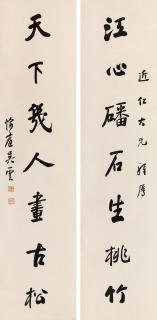 近仁大兄雅屬
江心磻石生桃竹
天下幾人畫古松
愉庭吳雲